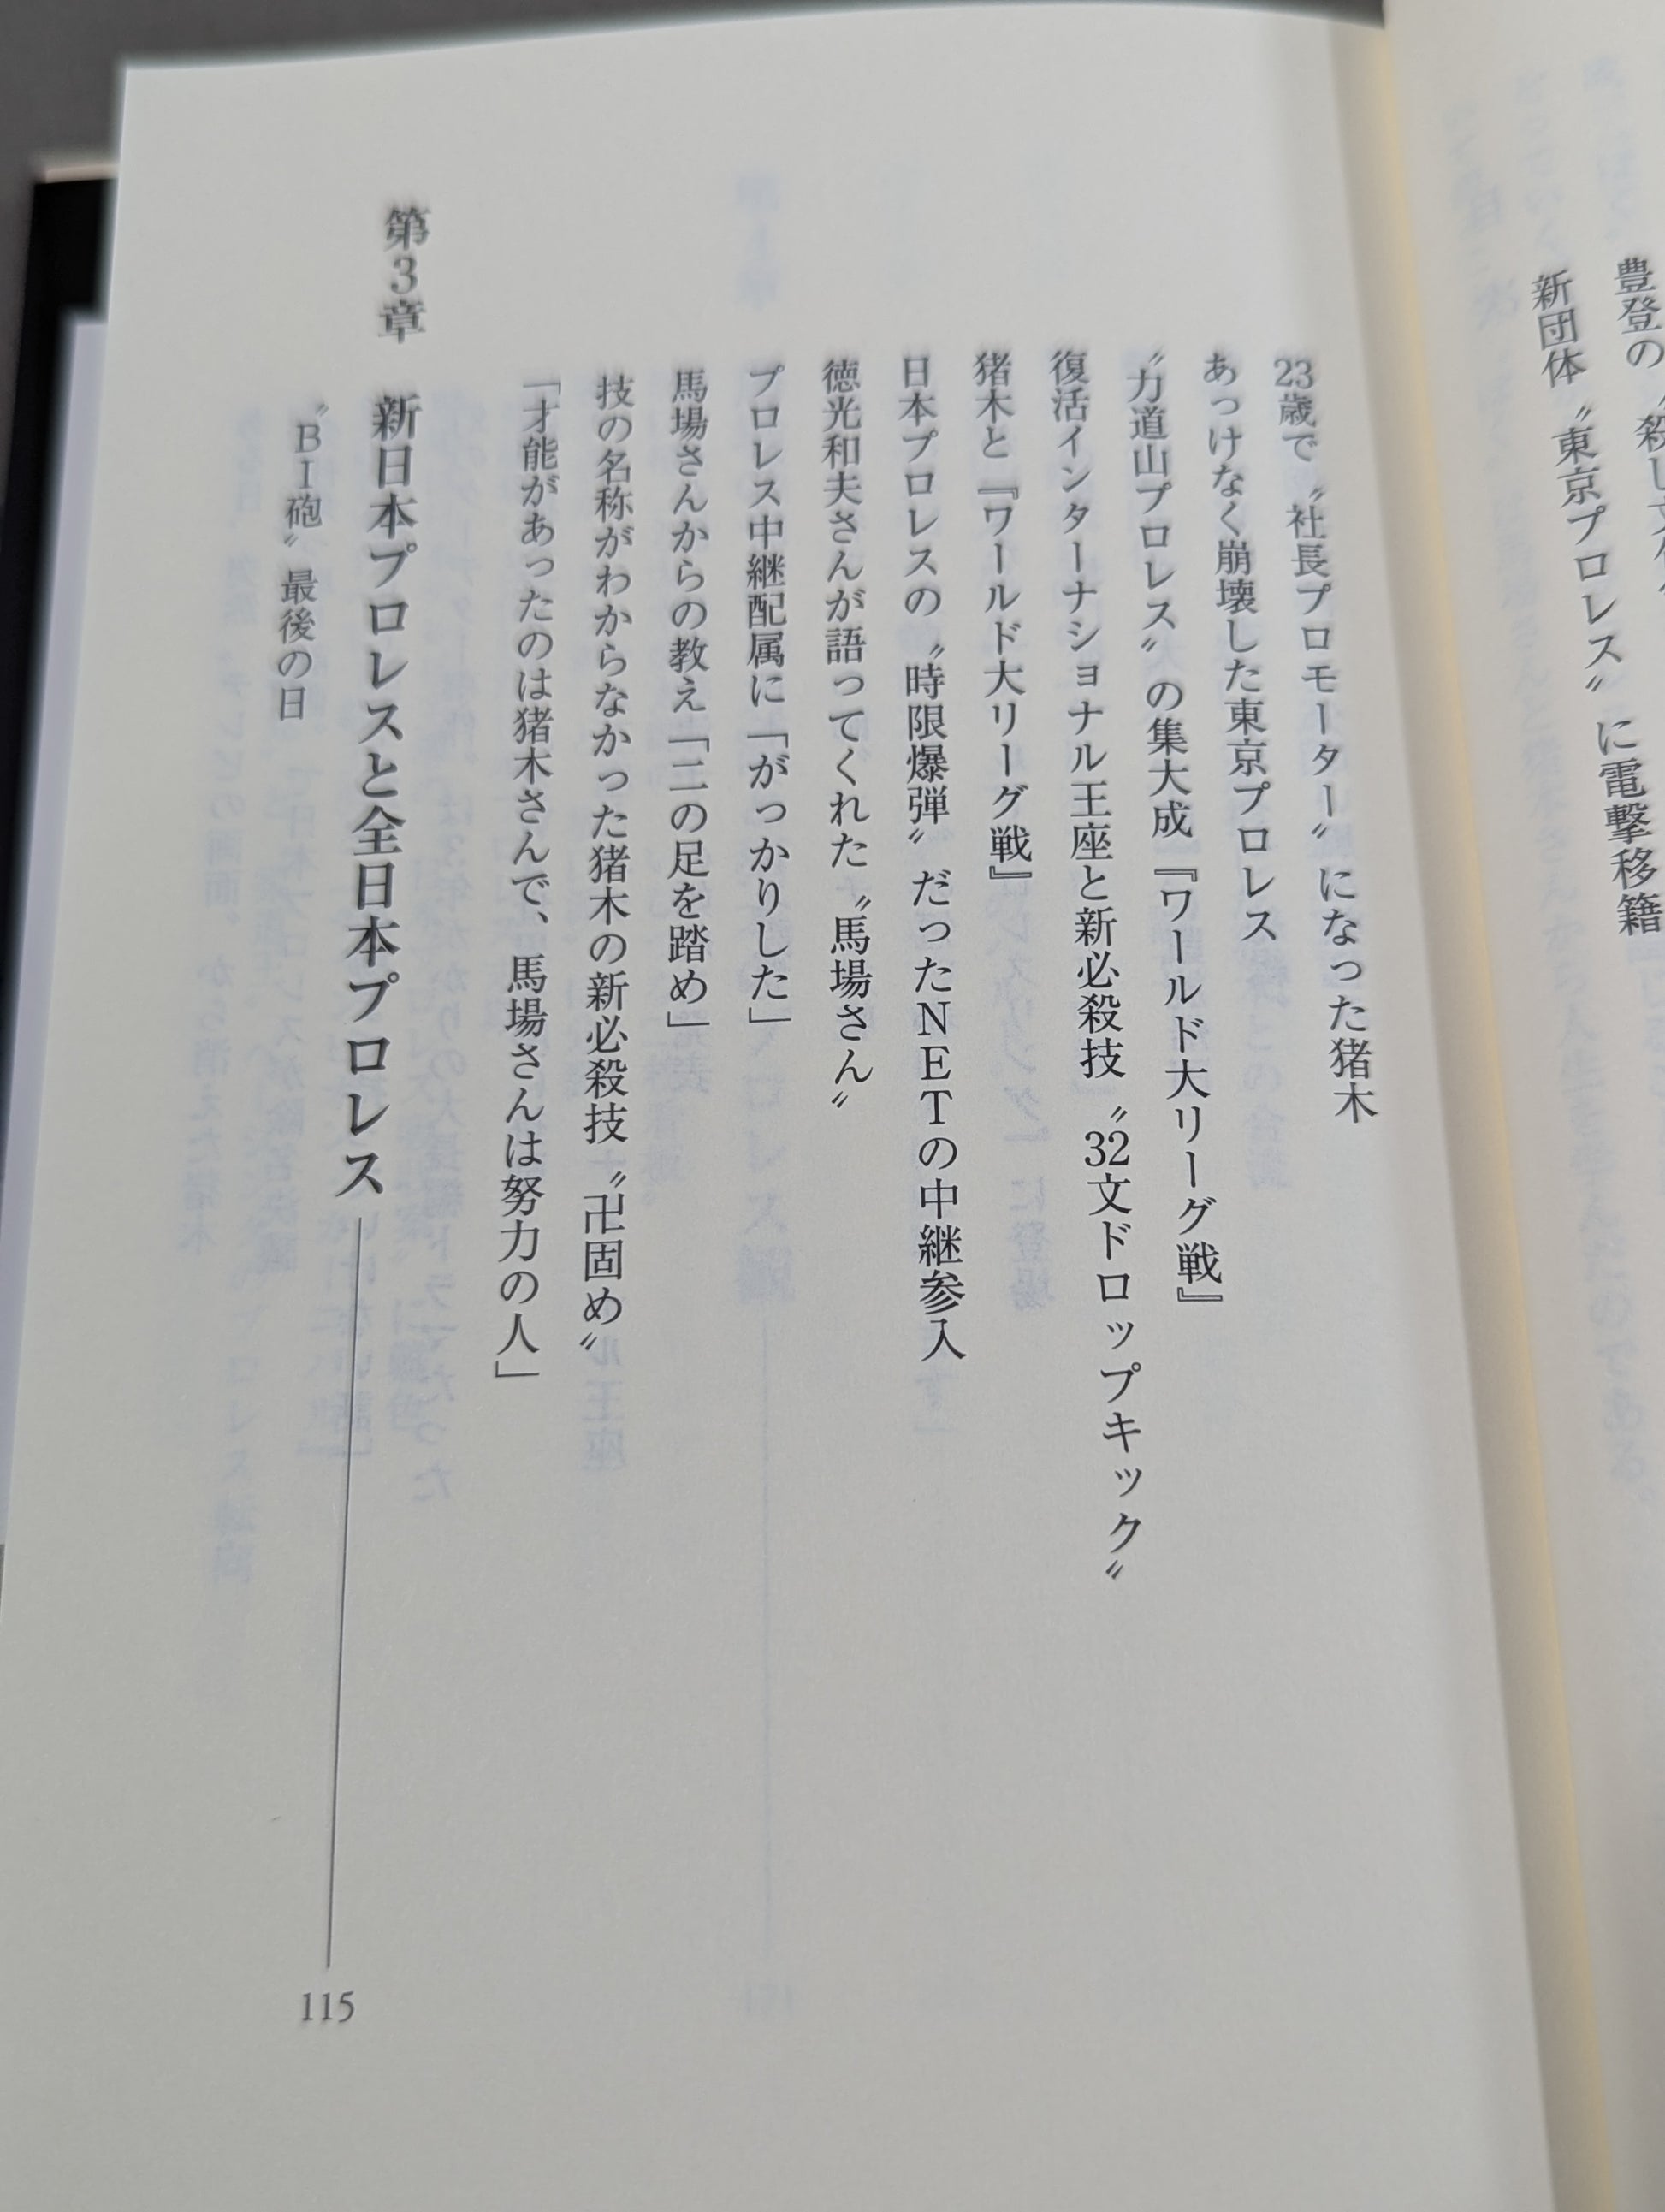 豊登の〝殺し文
新団体〝東京プロレス〟に電撃移籍
23歳で〝社長プロモーター〟になった猪木
あっけなく崩壊した東京プロレス
〝力道山プロレス〟の集大成『ワールド大リーグ戦』
復活インターナショナル王座と新必殺技〝32文ドロップキック〟
猪木と『ワールド大リーグ戦』
日本プロレスの〝時限爆弾〟だったNETの中継参入
徳光和夫さんが語ってくれた〝馬場さん〟
プロレス中継配属に「がっかりした」
馬場さんからの教え「二の足を踏め」
技の名称がわからなかった猪木の新必殺技〝卍固め〟
「才能があったのは猪木さんで、馬場さんは努力の人」
第3章 新日本プロレスと全日本プロレス 115
〝BI砲〟最後の日